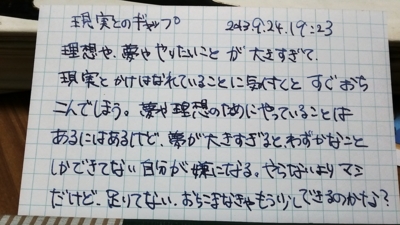 現実とのギャップ。 2013.9.24.19:23
理想や、夢ややりたいこと が 大きすぎて、
現実とかけはなれていることに気付くと すぐおち
こんでしまう。夢や理想のためにやっていることは
あるにはあるけど、夢が大きすぎるとわずかなこと
しかできてない自分が嫌になる。やらないよりマシ
だけど、足りてない。おちこまなきゃもう少しできるのかな?